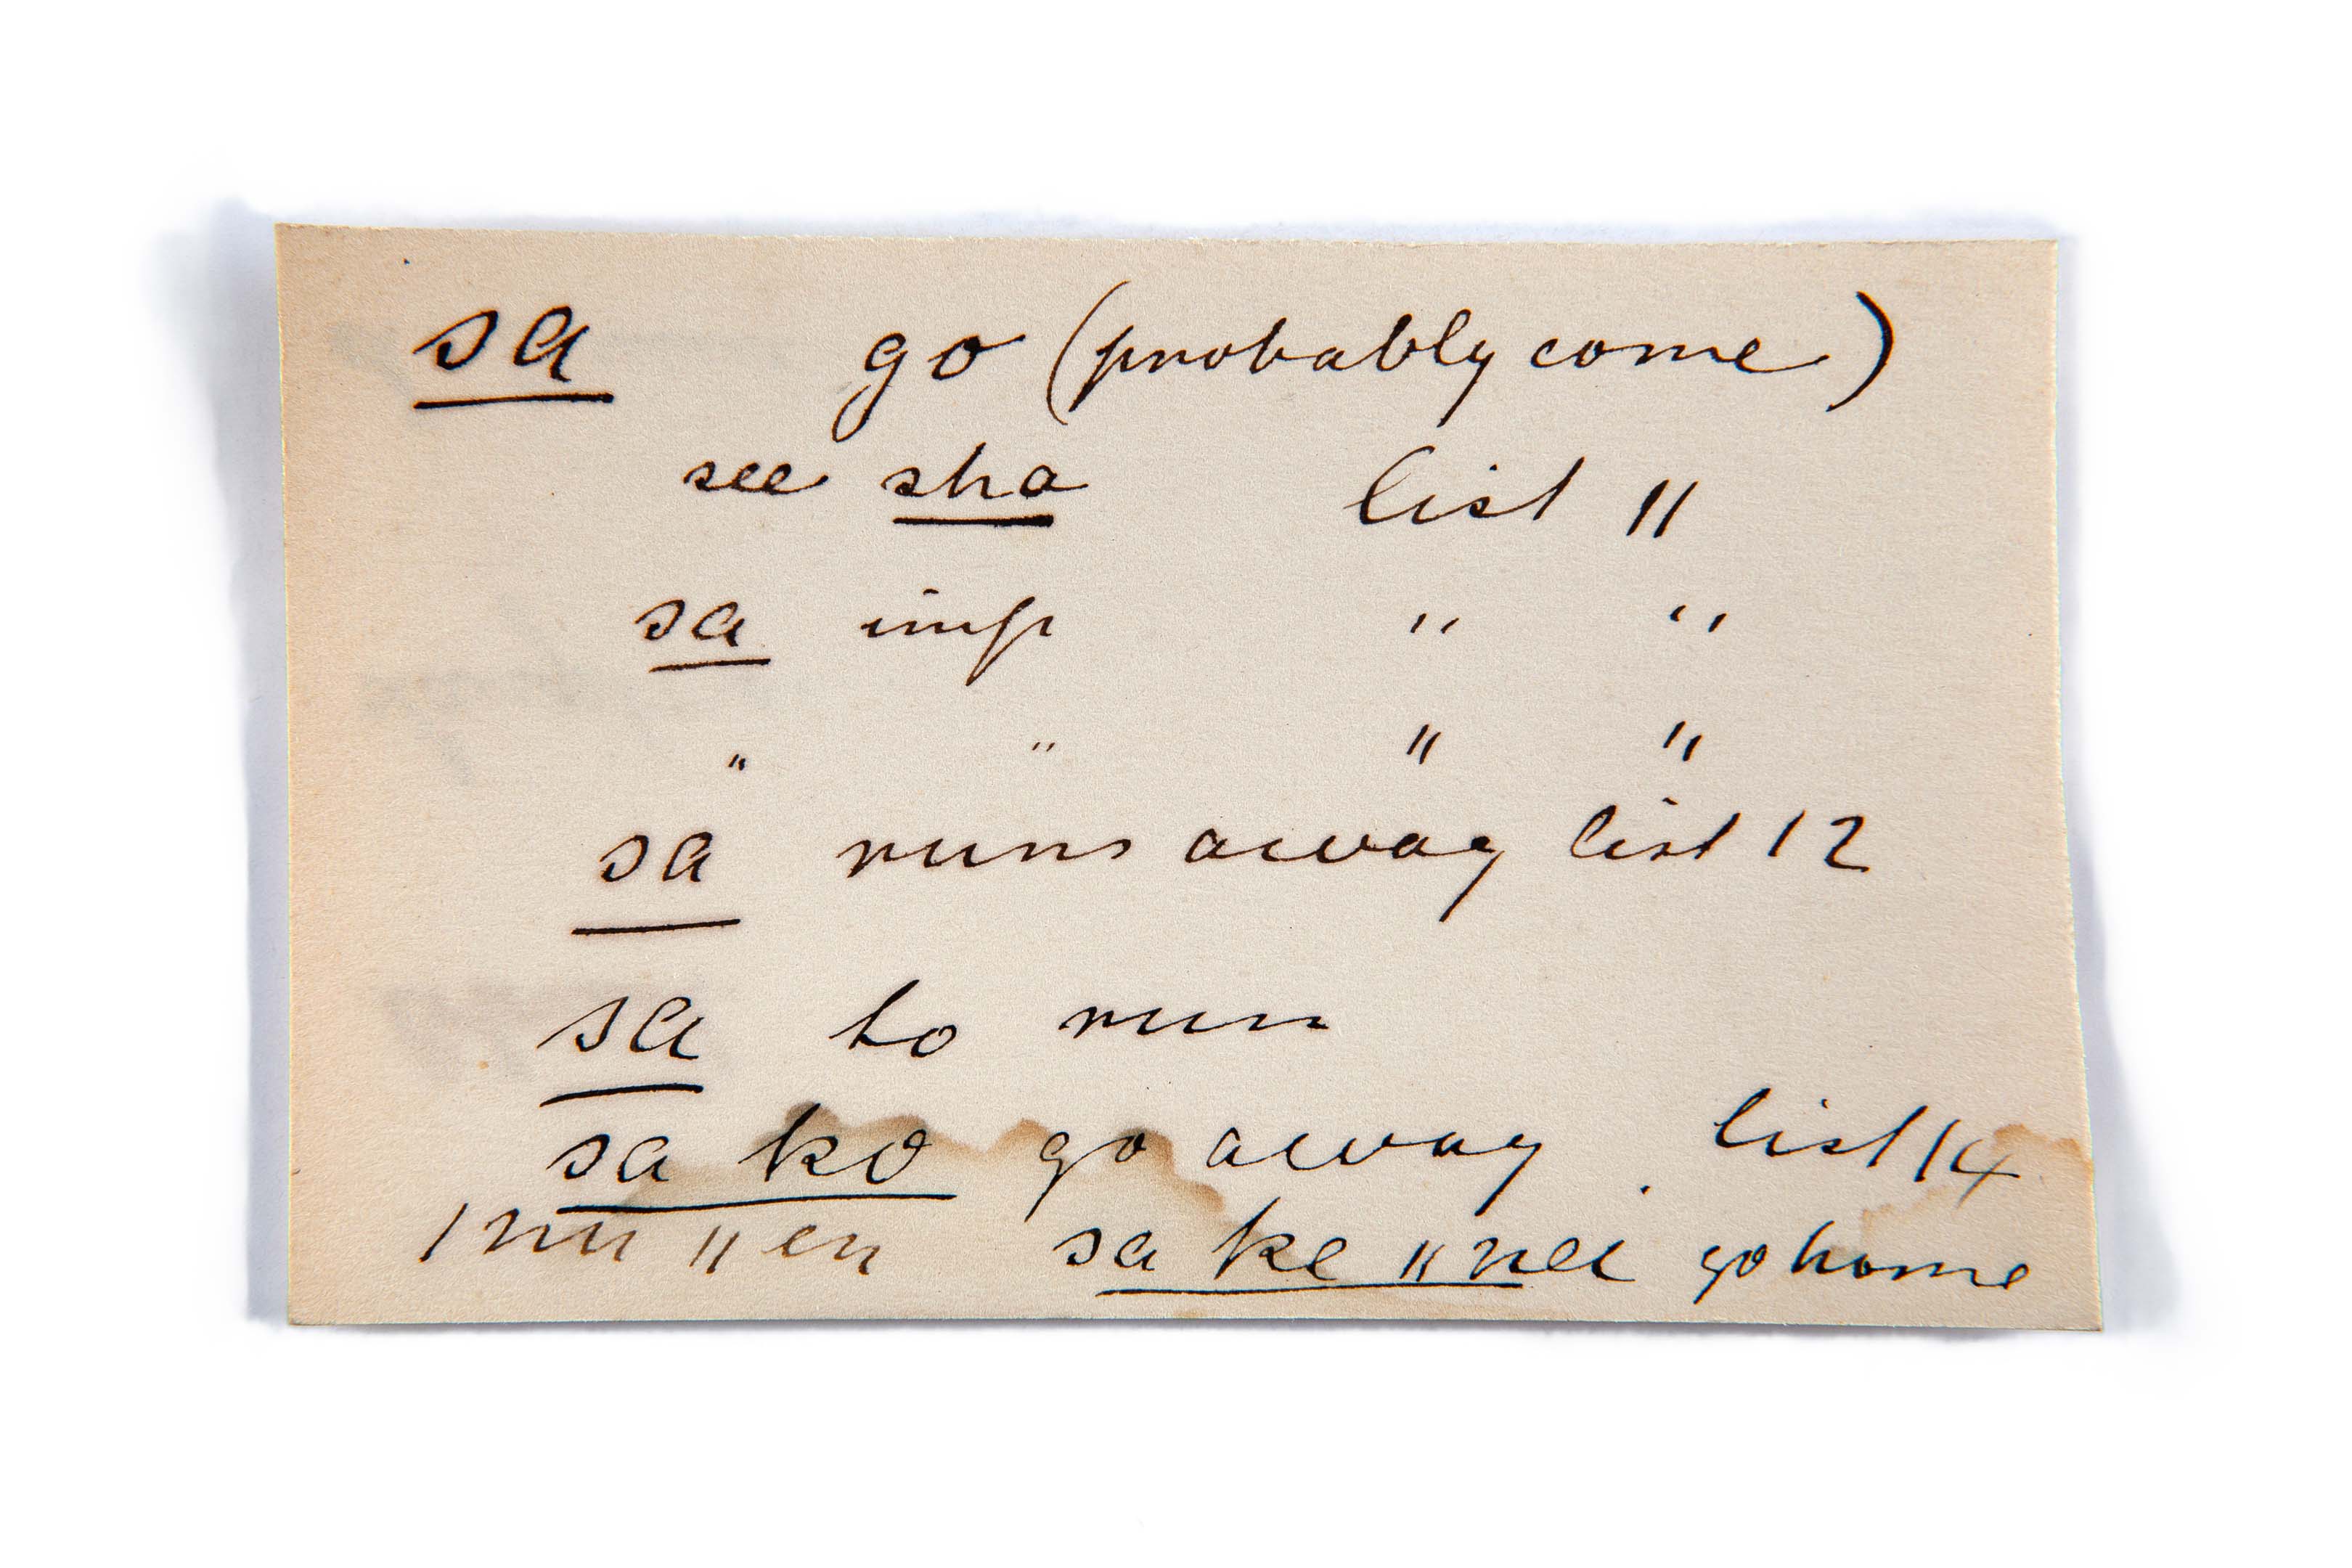 sa go (probably come)
see sha list 11
sa imp " "
" " " "
sa runs away list 12
sa to run
sa ko go away. list 14
sa ke "nei go home